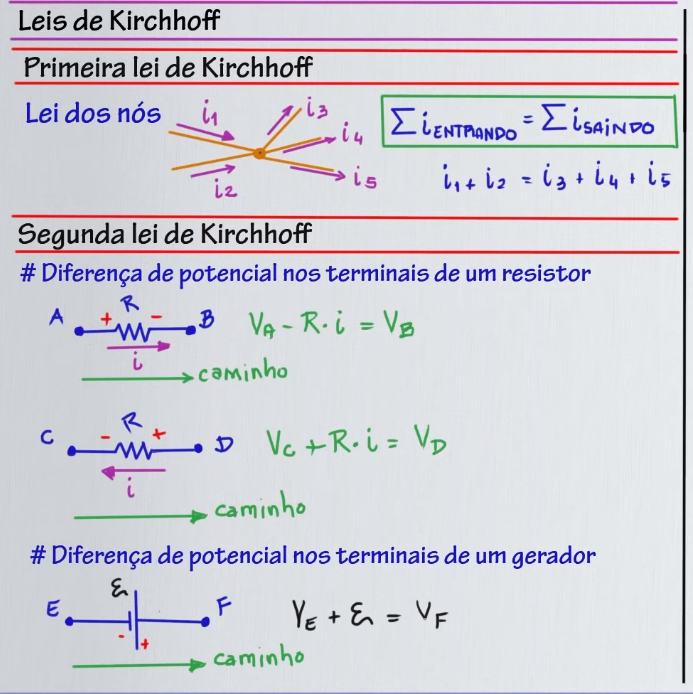 Leis de Kirchhoff
Primeira lei de Kirchhoff
Lei dos nós
i1
i2
i3
i4
i5
Σ iENTRANDO = Σ iSAiNDO
i1 + i2 = i3 + i4 + i5
Segunda lei de Kirchhoff
# Diferença de potencial nos terminais de um resistor
A + R - B
VA - R. i = VB
i
caminho
C - R + D
VC + R. i = VD
i
caminho
# Diferença de potencial nos terminais de um gerador
E ε F
VE + ε = VF
- +
caminho